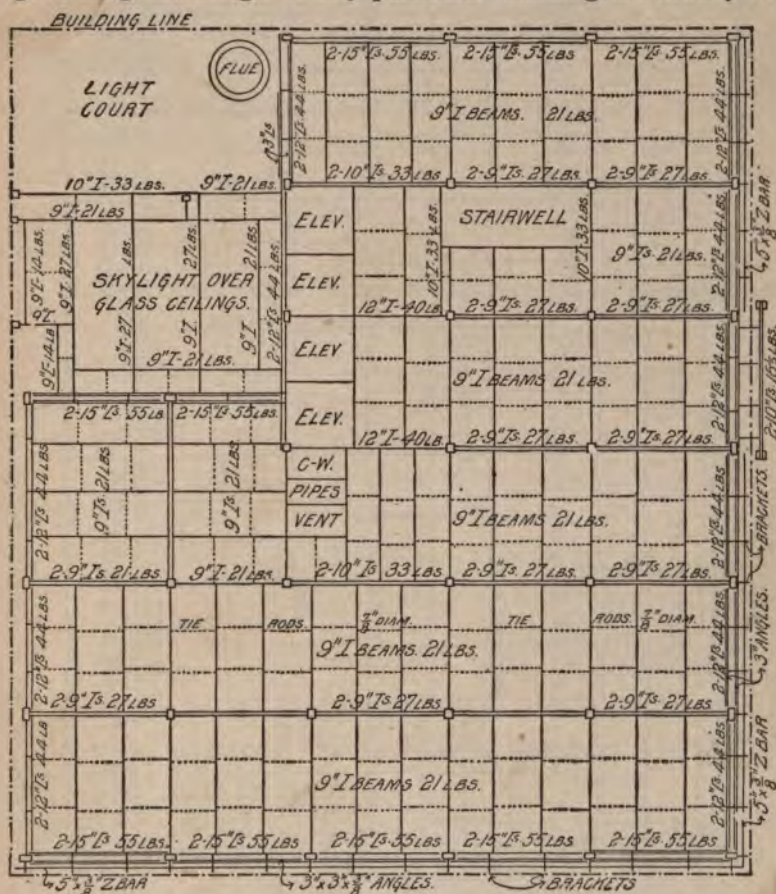 BUILDING LINE
FLUE
LIGHT
COURT
2-15"[s. 55 LBS.
2-15"[s. 55 LBS.
2-15"[s. 55 LBS.
2-12"[s. 44 LBS.
9" I BEAMS. 21 LBS.
2-12"[s. 44 LBS.
2-10" Is. 33 LBS.
2-9" Is. 27 LBS.
2-9" Is. 27 LBS.
10" I-33 LBS.
9" I-21 LBS.
9" I-21 LBS
ELEV.
STAIRWELL
10" I-33 LBS.
10" I-33 LBS.
9" Is. 21 LBS.
2-12"[s. 44 LBS.
5" x 3/8" Z BAR
9" I-14 LBS.
9" I-27 LBS.
SKYLIGHT OVER
GLASS CEILINGS.
9" I-27 LBS.
9" I 27 LBS.
9" I 21 LBS.
2-12"[s. 44 LBS.
ELEV.
12" I-40 LB.
2-9" Is. 27 LBS.
2-9" Is. 27 LBS.
9" I
9" I-14 LB
9" I-21 LBS.
ELEV.
9" I BEAMS 21 LBS.
2-12"[s. 44 LBS.
2-15"[s. 55 LB.
2-15"[s. 55 LBS.
ELEV.
12" I-40 LB.
2-9" Is. 27 LBS.
2-9" Is. 27 LBS.
2-12"[s. 44 LBS
9" Is. 21 LBS
9" Is. 21 LBS.
C-W.
PIPES
VENT
9" I BEAMS 21 LBS.
2-12"[s. 44 LBS
BRACKETS.
2-9" Is. 21 LBS
9" I-21 LBS.
2-10" Is 33 LBS
2-9" Is. 27 LBS.
2-9" Is. 27 LBS.
2-12"[s 44 LBS
TIE RODS. 7/8" DIAM. TIE RODS 7/8" DIAM.
9" I BEAMS. 21 LBS.
2-12"[s 44 LBS.
3" ANGLES.
2-9" Is. 27 LBS
2-9" Is. 27 LBS
2-9" Is. 27 LBS
2-12"[s 44 LB
9" I BEAMS 21 LBS.
2-12"[s 44 LBS.
5" x 3/8" Z BAR
2-15"[s 55 LBS.
2-15"[s 55 LBS
2-15"[s 55 LBS
2-15"[s 55 LBS
2-15"[s 55 LBS
5" x 3/8" Z BAR
BRACKETS